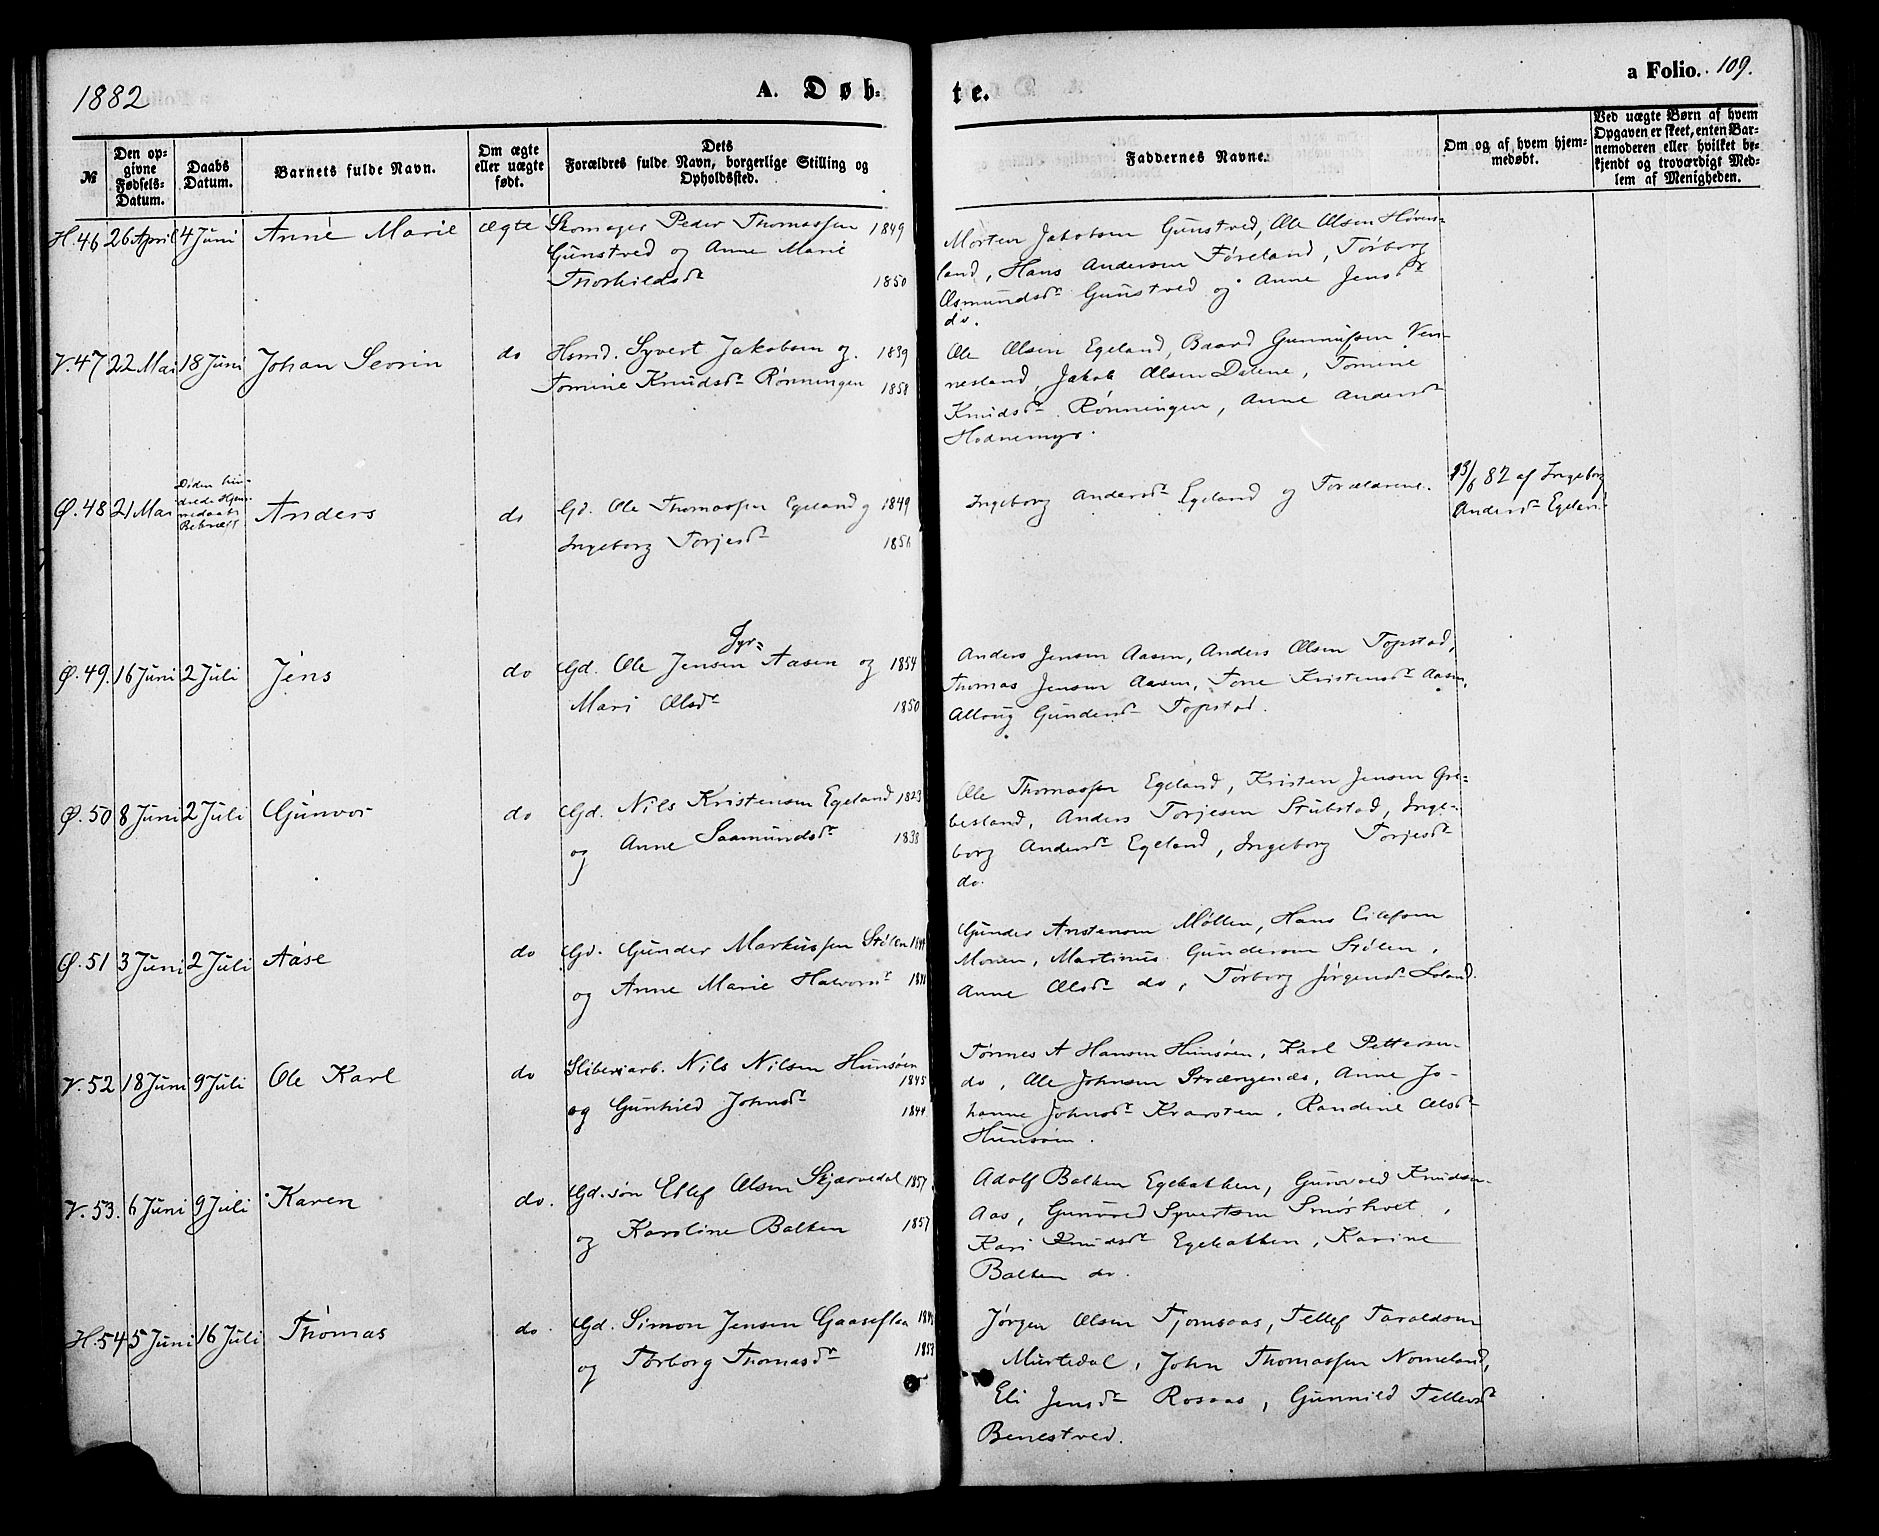 1882
A. Døb-
te.
a Folio. 109.
№
Den op-
givne
Fødsels-
Datum.
Daabs
Datum.
Barnets fulde Navn.
Om ægte
eller uægte
født.
Dets
Forældres fulde Navn, borgerlige Stilling og
Opholdssted.
Faddernes Navne.
Om og af hvem hjem-
medøbt.
Ved uægte Børn af hvem
Opgaven er skeet, enten Bar-
nemoderen eller hvilket be-
kjendt og troværdigt Med-
lem af Menigheden.
H.46 26 April 4 Juni Anne Marie ægte Skomager Peder Thomassen 1849
Gunstved og Anne Marie
Thorkildsdr 1850
Morten Jakobsen Gunstved, Ole Olsen Høves-
land, Hans Andersen Føreland, Tørborg
Asmundsdr Gunstved og Anne Jensdr
do.
V.47 22 Mai 18 Juni Johan Severin do Hsmd. Syvert Jakobsen og 1839
Tomine Knudsdr Rønningen 1858
Ole Olsen Egeland, Baard Gunnufsen Ven-
nesland, Jakob Olsen Dalene, Tomine
Knudsdr Rønningen, Anne Andersdr
Hodnemyr.
Ø.48 21 Mai Anders do Gd. Ole Thomassen Egeland og 1849
Ingeborg Torjesdr
Ingeborg Andersdr Egeland og Forældrene.
82 af Ingeborg
Andersdr Egeland
Ø.49. 16 Juni 2 Juli Jens do Gd. Ole Jensen Aasen og 1854
Mari Olsdr 1850
Anders Jensen Aasen, Anders Olsen Topstad,
Thomas Jensen Aasen, Tone Kristensdr Aasen,
Allaug Gundersdr Topstad.
Ø.50 8 Juni 2 Juli Gunvor do Gd. Nils Kristensen Egeland 1823
og Anne Saamundsdr 1838
Ole Thomassen Egeland, Kristen Jensen Gre-
besland, Anders Torjesen Stubstad, Inge-
borg Andersdr Egeland, Ingeborg Torjesdr
do.
Ø.51 3 Juni 2 Juli Aase do Gd. Gunder Markussen Stølen
og Anne Marie Halvorsdr
Gunder Anstensen Møllen, Hans Eilefsen
Monen, Martinus Gundersen Stølen,
Anne Olsdr do, Tørborg Jørgensdr Loland.
V.52 18 Juni 9 Juli Ole Karl do Sliberiarb. Nils Nilsen Hunsøen
1845
og Gunhild Johnsdr 1844
Tørnes A Hansen Hunsøen, Karl Pettersen
do, Ole Johnsen Strængenes, Anne Jo-
hanne Johnsdr Kvarsten, Randine Olsdr
Hunsøen.
V.53. 6 Juni 9 Juli Karen do. Gd.søn Ellef Olsen Skjærvedal 1857
og Karoline Balken 1857
Adolf Balken Egebakken, Gunvald Knudsen
Aas, Gunvald Syvertsen Smørholt,
Kari Knudsdr Egebakken, Karine
Balken do.
H.54 5 Juni 16 Juli Thomas do. Gd. Simon Jensen Gaaseflaa
og Tørborg Thomasdr
Jørgen Olsen Tjomsaas, Tellef Taraldsen
Murtedal, John Thomassen Nomeland,
Eli Jensdr Rosaas, Gunnild Tellevsdr
Benestved.